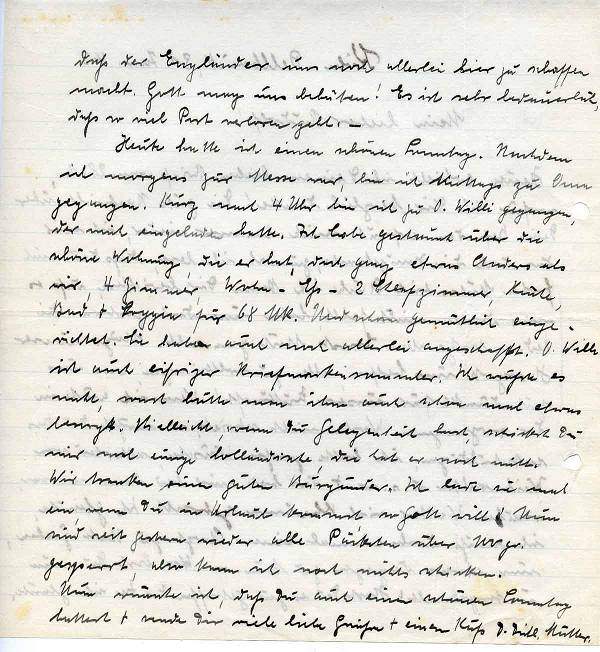 daß der Engländer uns noch allerlei hier zu schaffen
macht. Gott mag uns behüten! Es ist sehr bedauerlich,
daß so viel Post verloren geht. –
Heute hatte ich einen schönen Sonntag. Nachdem
ich morgens zur Messe war, bin ich Mittags zu Oma
gegangen. Kurz nach 4 Uhr bin ich zu O. Willi gegangen,
der mich eingeladen hatte. Ich habe gestaunt über die
schöne Wohnung, die er hat, doch ganz etwas Anders als
wir. 4 Zimmer, Wohn - Eß - 2 Schlafzimmer, Küche,
Bad + Loggia für 68 Mk. Und schön gemütlich einge-
richtet. Sie haben auch noch allerlei angeschafft. O. Willi
ist auch eifriger Briefmarkensammler. Ich wußte es
nicht, sonst hätte man ihm auch schon mal etwas
besorgt. Vielleicht, wenn Du Gelegenheit hast, schickst Du
mir mal einige holländische, die hat er noch nicht.
Wir tranken einen guten Burgunder. Ich lade sie mal
ein, wenn Du in Urlaub kommst, so Gott will! Nun
sind seit gestern wieder alle Päckchen über 100 gr.
gesperrt, also kann ich noch nichts schicken.
Nun wünsche ich, daß Du auch einen schönen Sonntag
hattest + sende Dir viele liebe Grüße + einen Kuß D. Mutter.